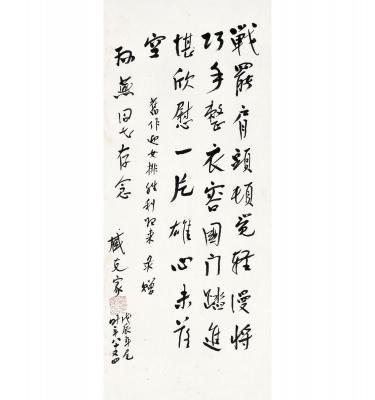 戰罷肩頭頓覺輕漫將
巧手整衣容國门踏進
堪欣慰一片雄心未落
空
舊作迎女排胜利归来 录赠
孙燕同志存念
臧克家
戊辰年尾
时年八十又四